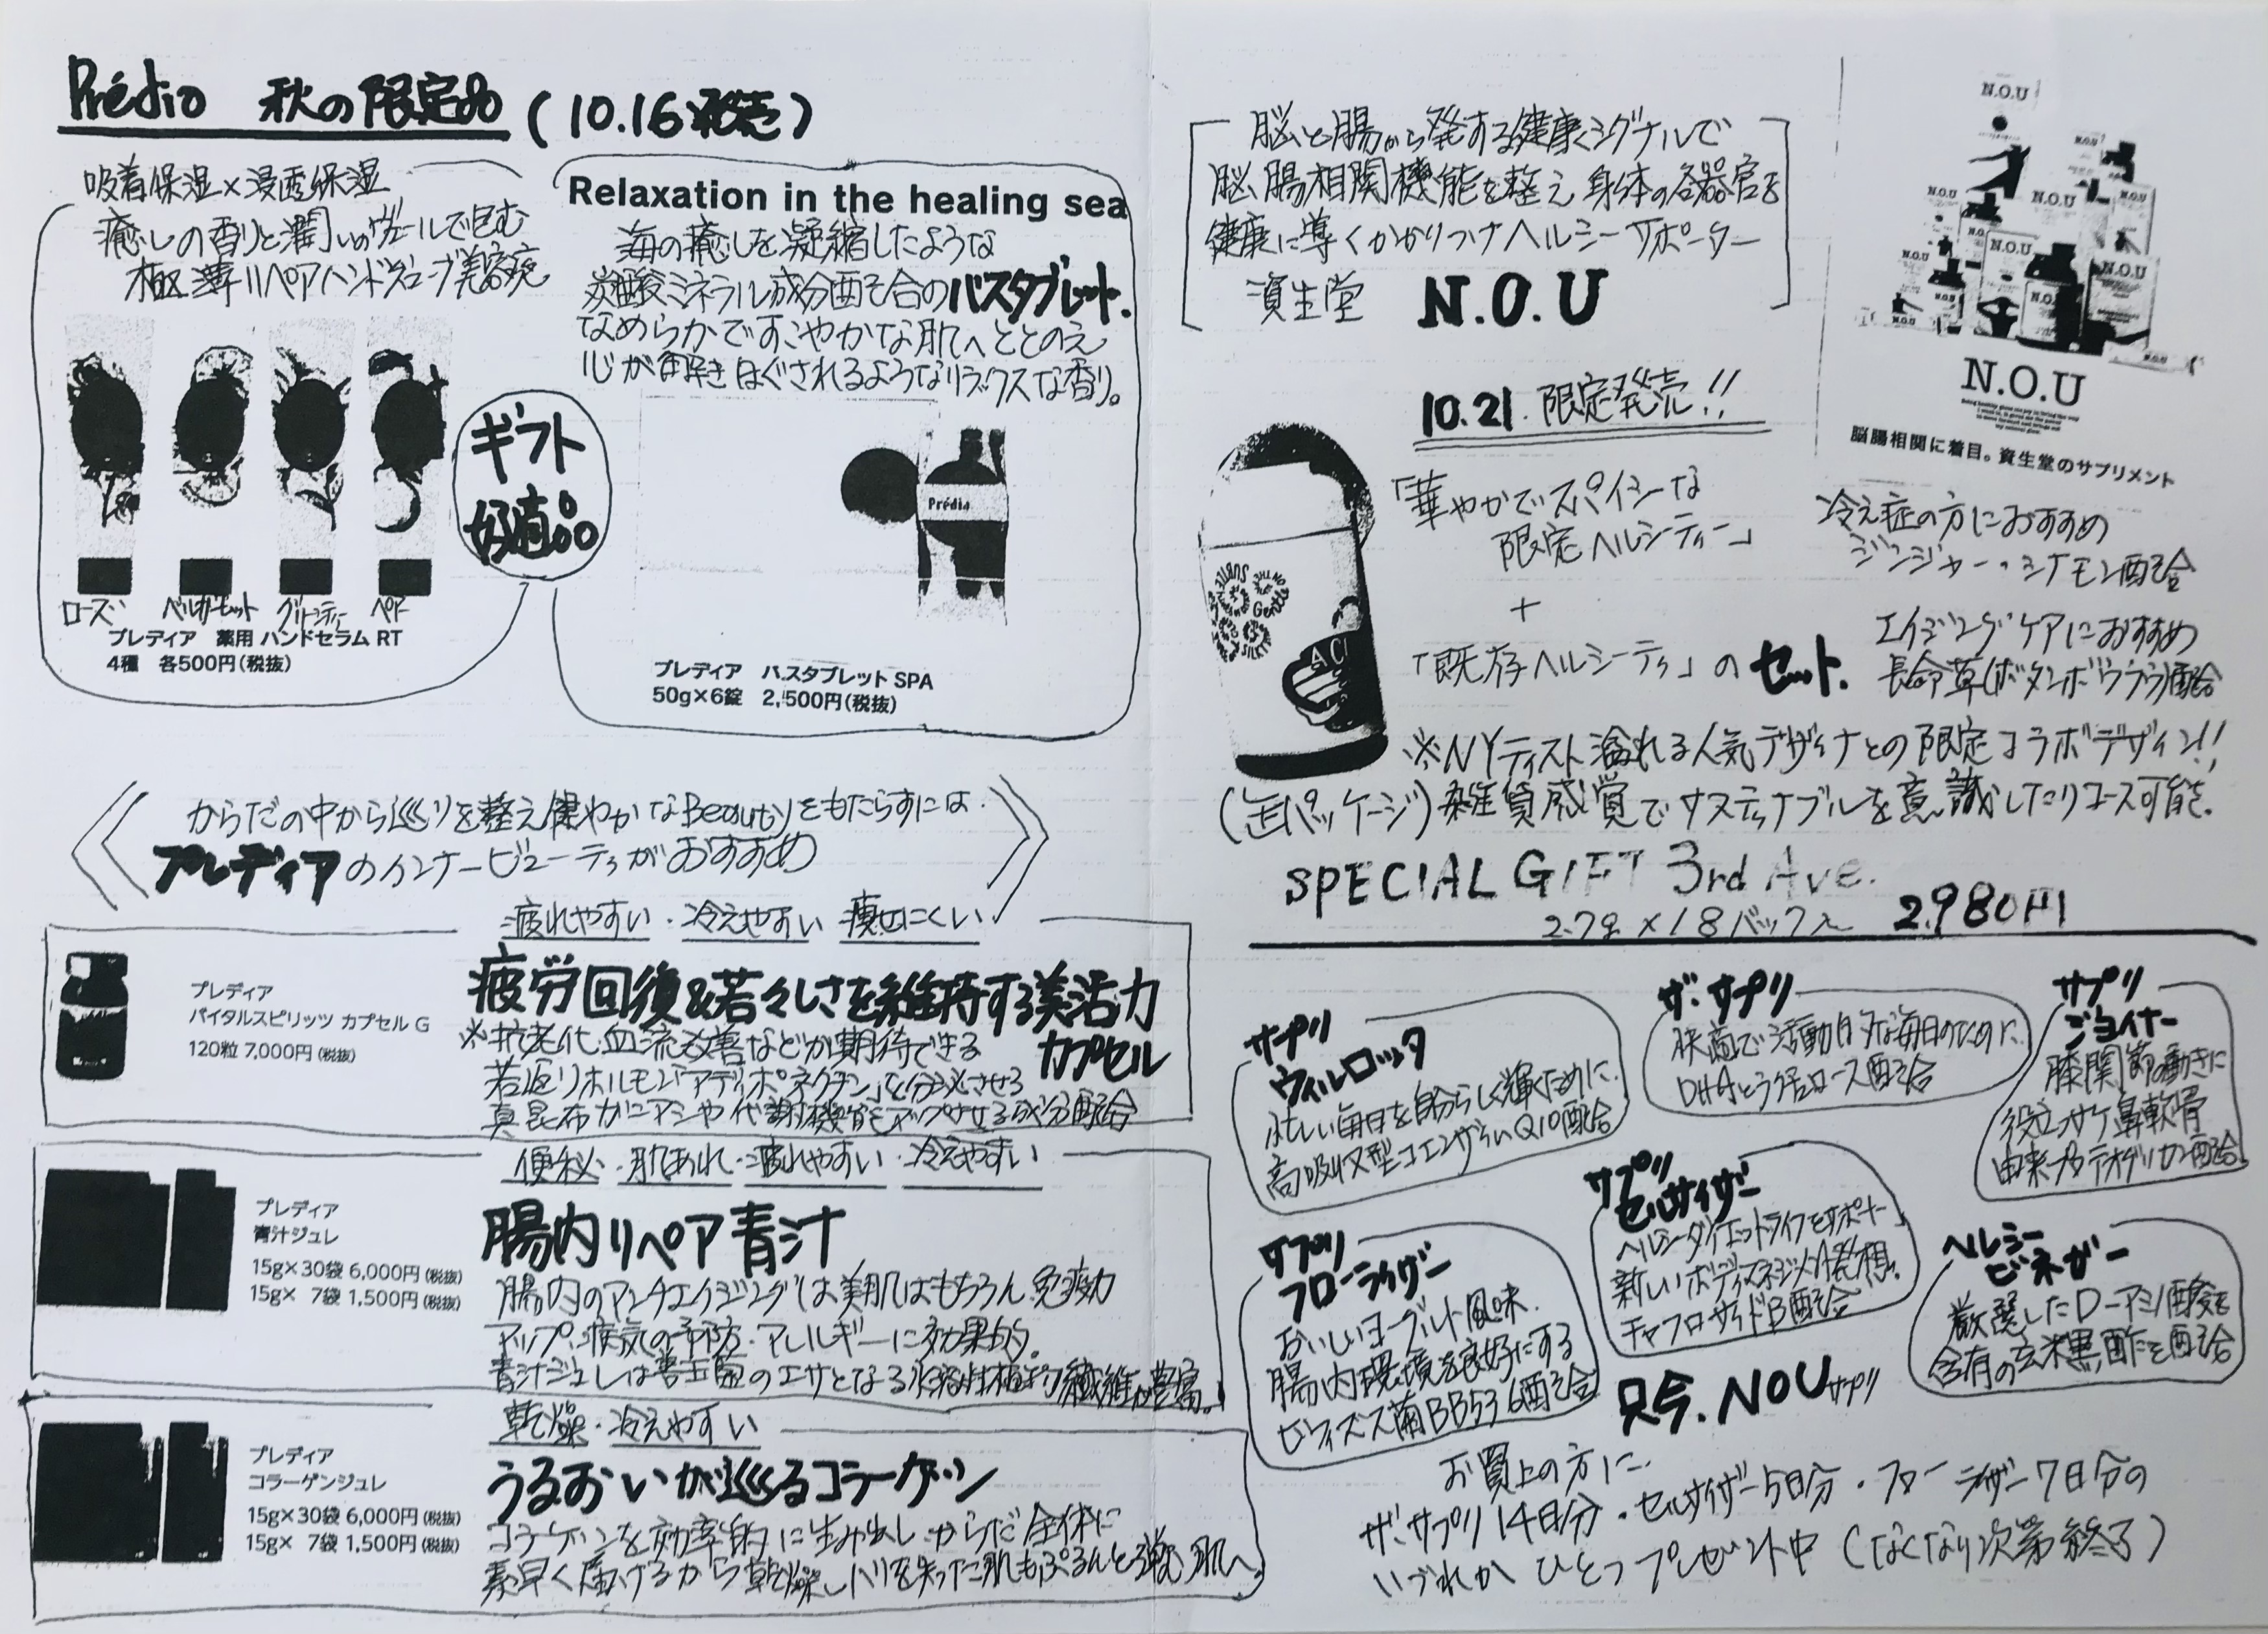 Prédia 秋の限定品 (10.16発売)
吸着保湿×浸透保湿
癒しの香りと潤いのヴェールで包む
極薄リペアハンドグローブ美容液
ギフト
好適品
ローズ ベルガモット グリーンティー ペアー
プレディア 薬用 ハンドセラム RT
4種 各500円(税抜)
Relaxation in the healing sea
海の癒しを凝縮したような
炭酸ミネラル成分配合のバスタブレット.
なめらかですこやかな肌へととのえ
心が解きほぐされるようなリラックスな香り。
Prédia
プレディア バスタブレット SPA
50g×6錠 2,500円(税抜)
からだの中から巡りを整え健やかなBeautyをもたらすには
プレディアのインナービューティがおすすめ
疲れやすい・冷えやすい 痩せにくい
プレディア
バイタルスピリッツ カプセル G
120粒 7,000円(税抜)
疲労回復&若々しさを維持する美活力
カプセル
※抗老化.血流改善などが期待できる
若返りホルモン「アディポネクチン」を分泌させる
真昆布ガニアシや代謝機能アップさせる成分配合
便秘・肌あれ・疲れやすい・冷えやすい
プレディア
青汁ジュレ
15g×30袋 6,000円(税抜)
15g× 7袋 1,500円(税抜)
腸内リペア青汁
腸内のアンチエイジングは美肌はもちろん.免疫力
アップ・病気の予防・アレルギーに効果的。
青汁ジュレは善玉菌のエサとなる水溶性植物繊維が豊富。
乾燥・冷えやすい
プレディア
コラーゲンジュレ
15g×30袋 6,000円(税抜)
15g× 7袋 1,500円(税抜)
うるおいが巡るコラーゲン
コラーゲンを効率的に生み出し.からだ全体に
素早く届けるから乾燥しハリを失った肌もぷるんと弾む肌へ
脳と腸から発する健康シグナルで
脳腸相関機能を整え身体の各器官を
健康に導くかかりつけヘルシーサポーター
資生堂 N.O.U
N.O.U
脳腸相関に着目。資生堂のサプリメント
10.21.限定発売!!
「華やかでスパイシーな
限定ヘルシーティー」
+
「既存ヘルシーティ」のセット.
冷え症の方におすすめ
ジンジャー・シナモン配合
エイジングケアにおすすめ
長命草(ボタンボウフウ)配合
※NYテイスト溢れる人気デザイナとの限定コラボデザイン!!
(缶パッケージ)雑貨感覚でサスティナブルを意識したリユース可能.
SPECIAL GIFT 3rd Ave.
2.7g×18パック入 2.980円
サプリ
ウィルロッタ
忙しい毎日を自分らしく輝くために.
高吸収型コエンザイムQ10配合
ザ・サプリ
快適で活動的な毎日のために.
サプリ
ジョイナー
膝関節の動きに
役立つサケ鼻軟骨
由来プロテオグリカン配合
サプリ
フローライザー
おいしいヨーグルト風味.
腸内環境を良好にする
ビフィズス菌BB536配合
サプリ
セルサイザー
ヘルシーダイエットライフをサポート
新しいボディマネジメント発想.
チャフロサイドB配合
ヘルシー
ビネガー
厳選したD-アミノ酸を
含有の玄米黒酢を配合
只今.NOUサプリ
お買上の方に.
ザ・サプリ14日分・セルサイザー5日分・フローライザー7日分の
いづれかひとつプレゼント中(なくなり次第終了)